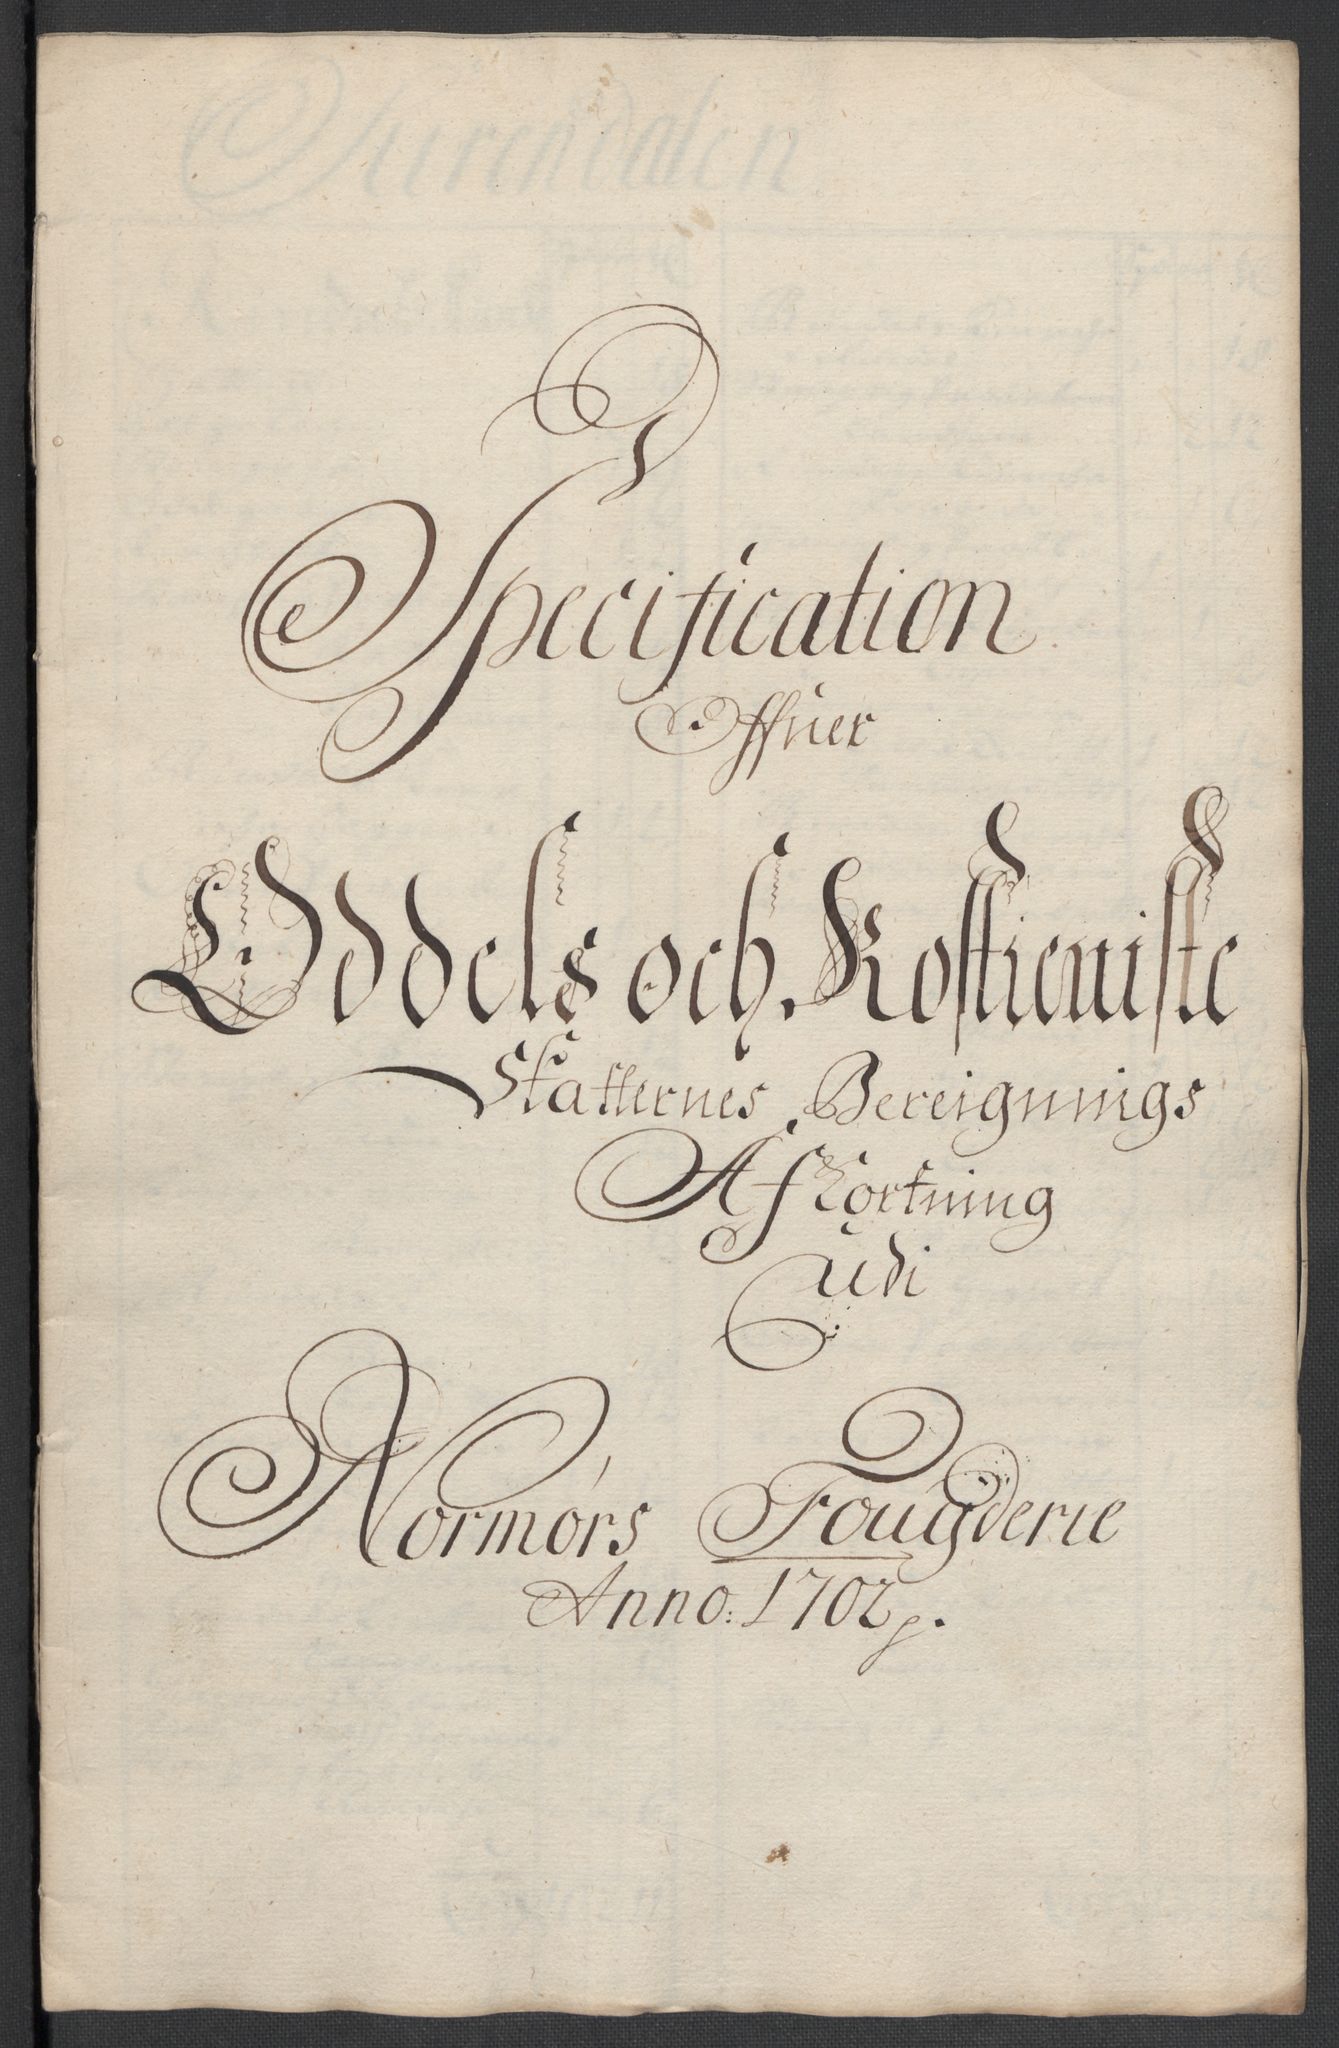 Surendalen
Specification
Offuer
Oddels och Rostieniste
Skatternes Bereignings
Af Kortning
Udi
Normørs Fougderie
Anno: 1702